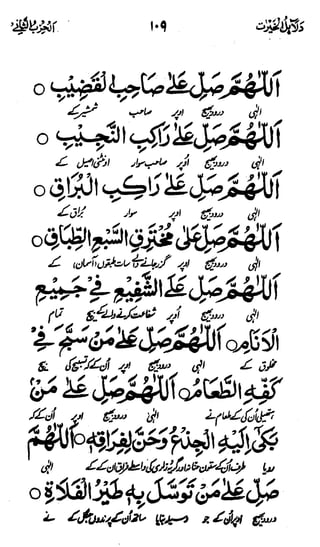 دلائل الخیرت ۱۰۹ الحزب الثانی
اَللّٰهُمَّ صَلِّ عَلٰى صَاحِبِ الْقَضِيْبِ ○
الٰہی درود بھیج اوپر صاحب شمشیر کے
اَللّٰهُمَّ صَلِّ عَلٰى رَاكِبِ النَّجِيْبِ ○
الٰہی درود بھیج اوپر صاحب سوار اونٹنی اصیل کے
اَللّٰهُمَّ صَلِّ عَلٰى رَاكِبِ الْبُرَاقِ ○
الٰہی درود بھیج اوپر سوار براق کے
اَللّٰهُمَّ صَلِّ عَلٰى مُخْتَرِقِ السَّبْعِ الطِّبَاقِ ○
الٰہی درود بھیج اوپر گزر جانے والے سات طبقوں آسمان کے
اَللّٰهُمَّ صَلِّ عَلَى الشَّفِيْعِ فِىْ جَمِيْعِ
الٰہی درود بھیج اوپر شفاعت کرنے والے کے بیچ تمام
الْاَنَامِ ○ اَللّٰهُمَّ صَلِّ عَلٰى مَنْ سَبَّحَ فِىْ
مخلوق کے الٰہی درود بھیج اوپر ان کے کہ تسبیح کی بیچ
كَفِّهِ الطَّعَامُ ○ اَللّٰهُمَّ صَلِّ عَلٰى مَنْ
ہتھیلی ان کی کے طعام نے الٰہی درود بھیج اوپر ان کے کہ
بَكٰى اِلَيْهِ الْجِذْعُ وَحَنَّ لِفِرَاقِهٖ ○ اَللّٰهُمَّ
رویا طرف ان کے ستون اور زاری کی واسطے فراق ان کے کے الٰہی
صَلِّ عَلٰى مَنْ تَوَسَّلَ بِهٖ طَيْرُ الْفَلَاةِ ○
درود بھیج اوپر ان کے جو وسیلہ بنایا ساتھ ان کے پرندوں جنگل کے نے